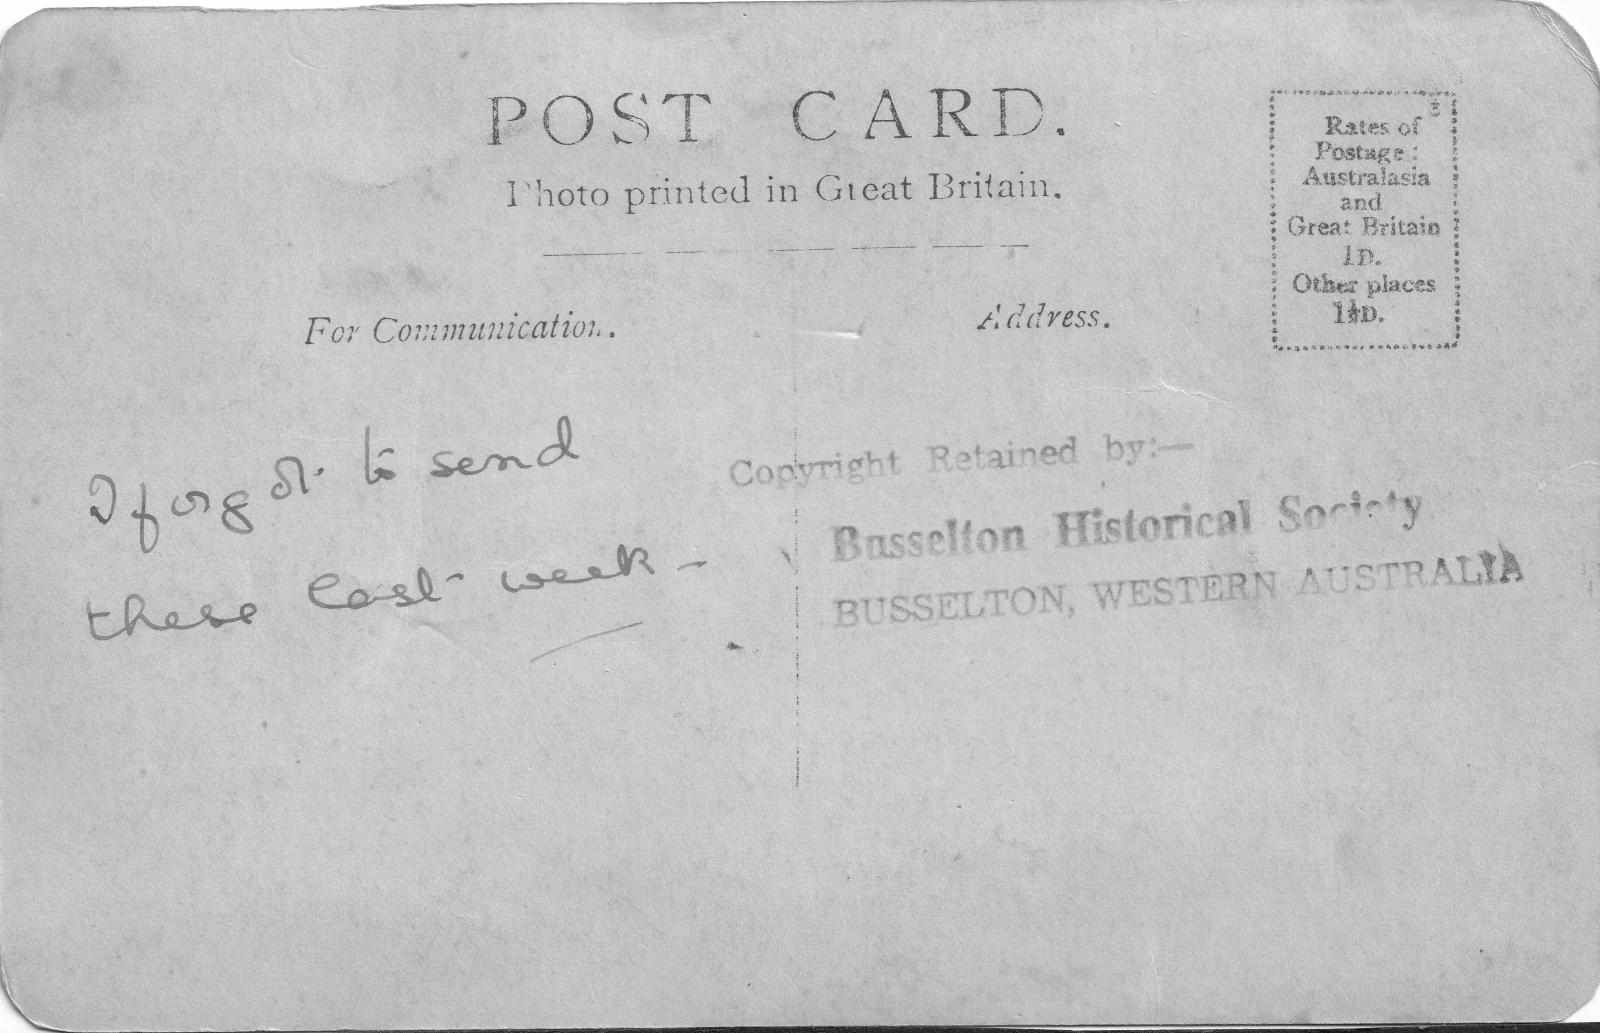 POST CARD.
Photo printed in Great Britain.
Rates of
Postage:
Australasia
and
Great Britain
1D.
Other places
1½D.
For Communication.
Address.
I forgot to send
these last week –
Copyright Retained by:—
Busselton Historical Society
BUSSELTON, WESTERN AUSTRALIA